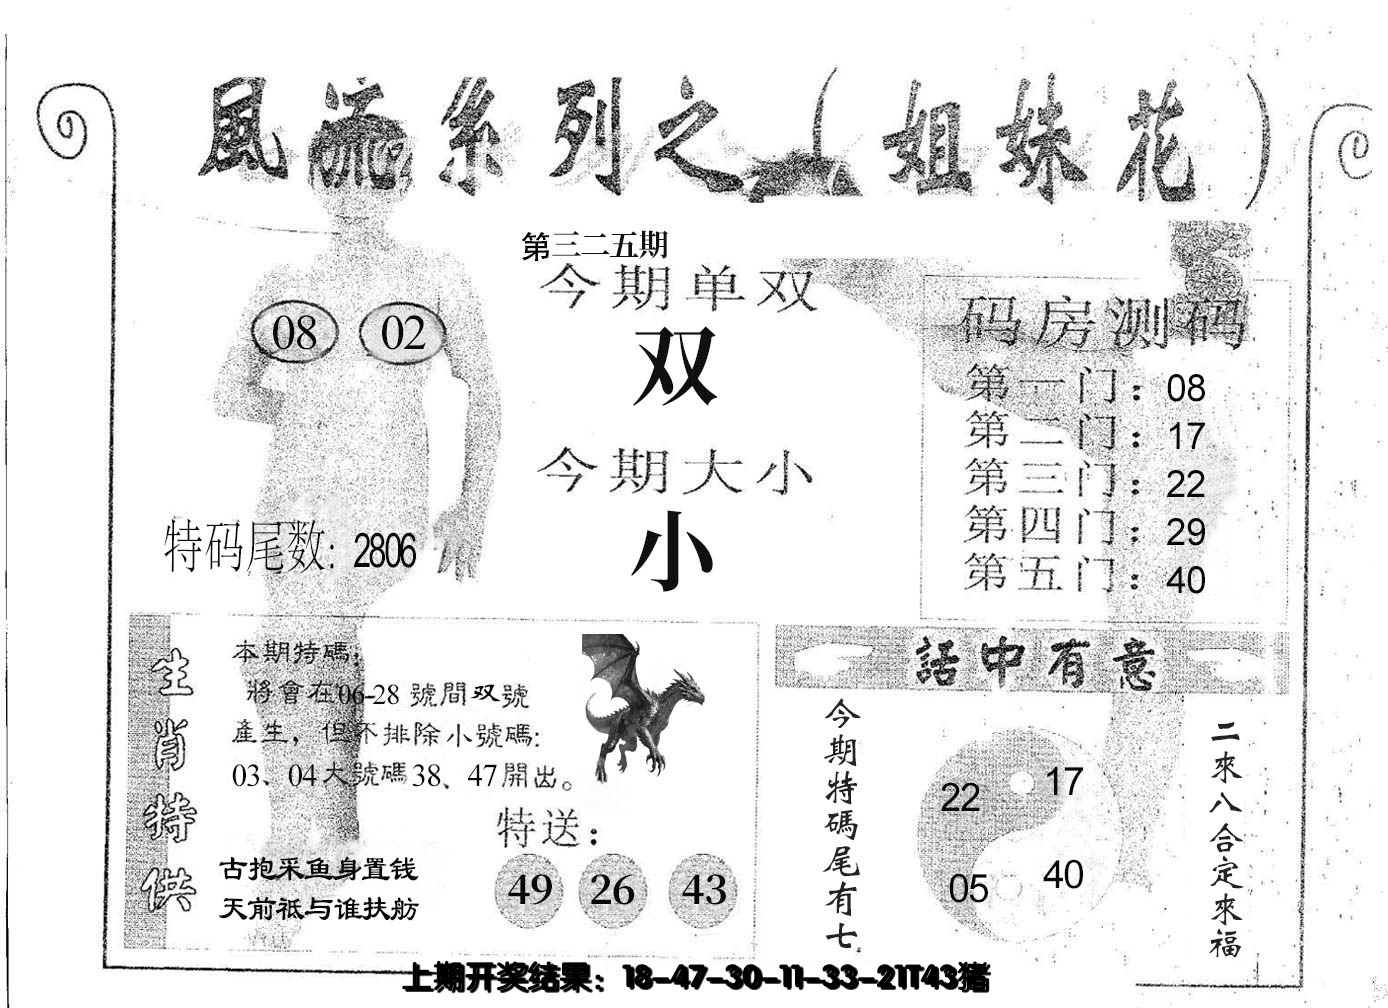 風流系列之（姐妹花）
第三二五期
今期单双
双
08 02
今期大小
小
特码尾数: 2806
码房测码
第一门：08
第二门：17
第三门：22
第四门：29
第五门：40
生肖特供
本期特碼，
將會在06-28 號間双號
產生，但不排除小號碼:
03、04大號碼38、47開出。
特送：
49 26 43
古抱采鱼身置钱
天前祗与谁扶舫
話中有意
今期特碼尾有七
22 17
05 40
二來八合定來福
上期开奖结果：18-47-30-11-33-21T43猪